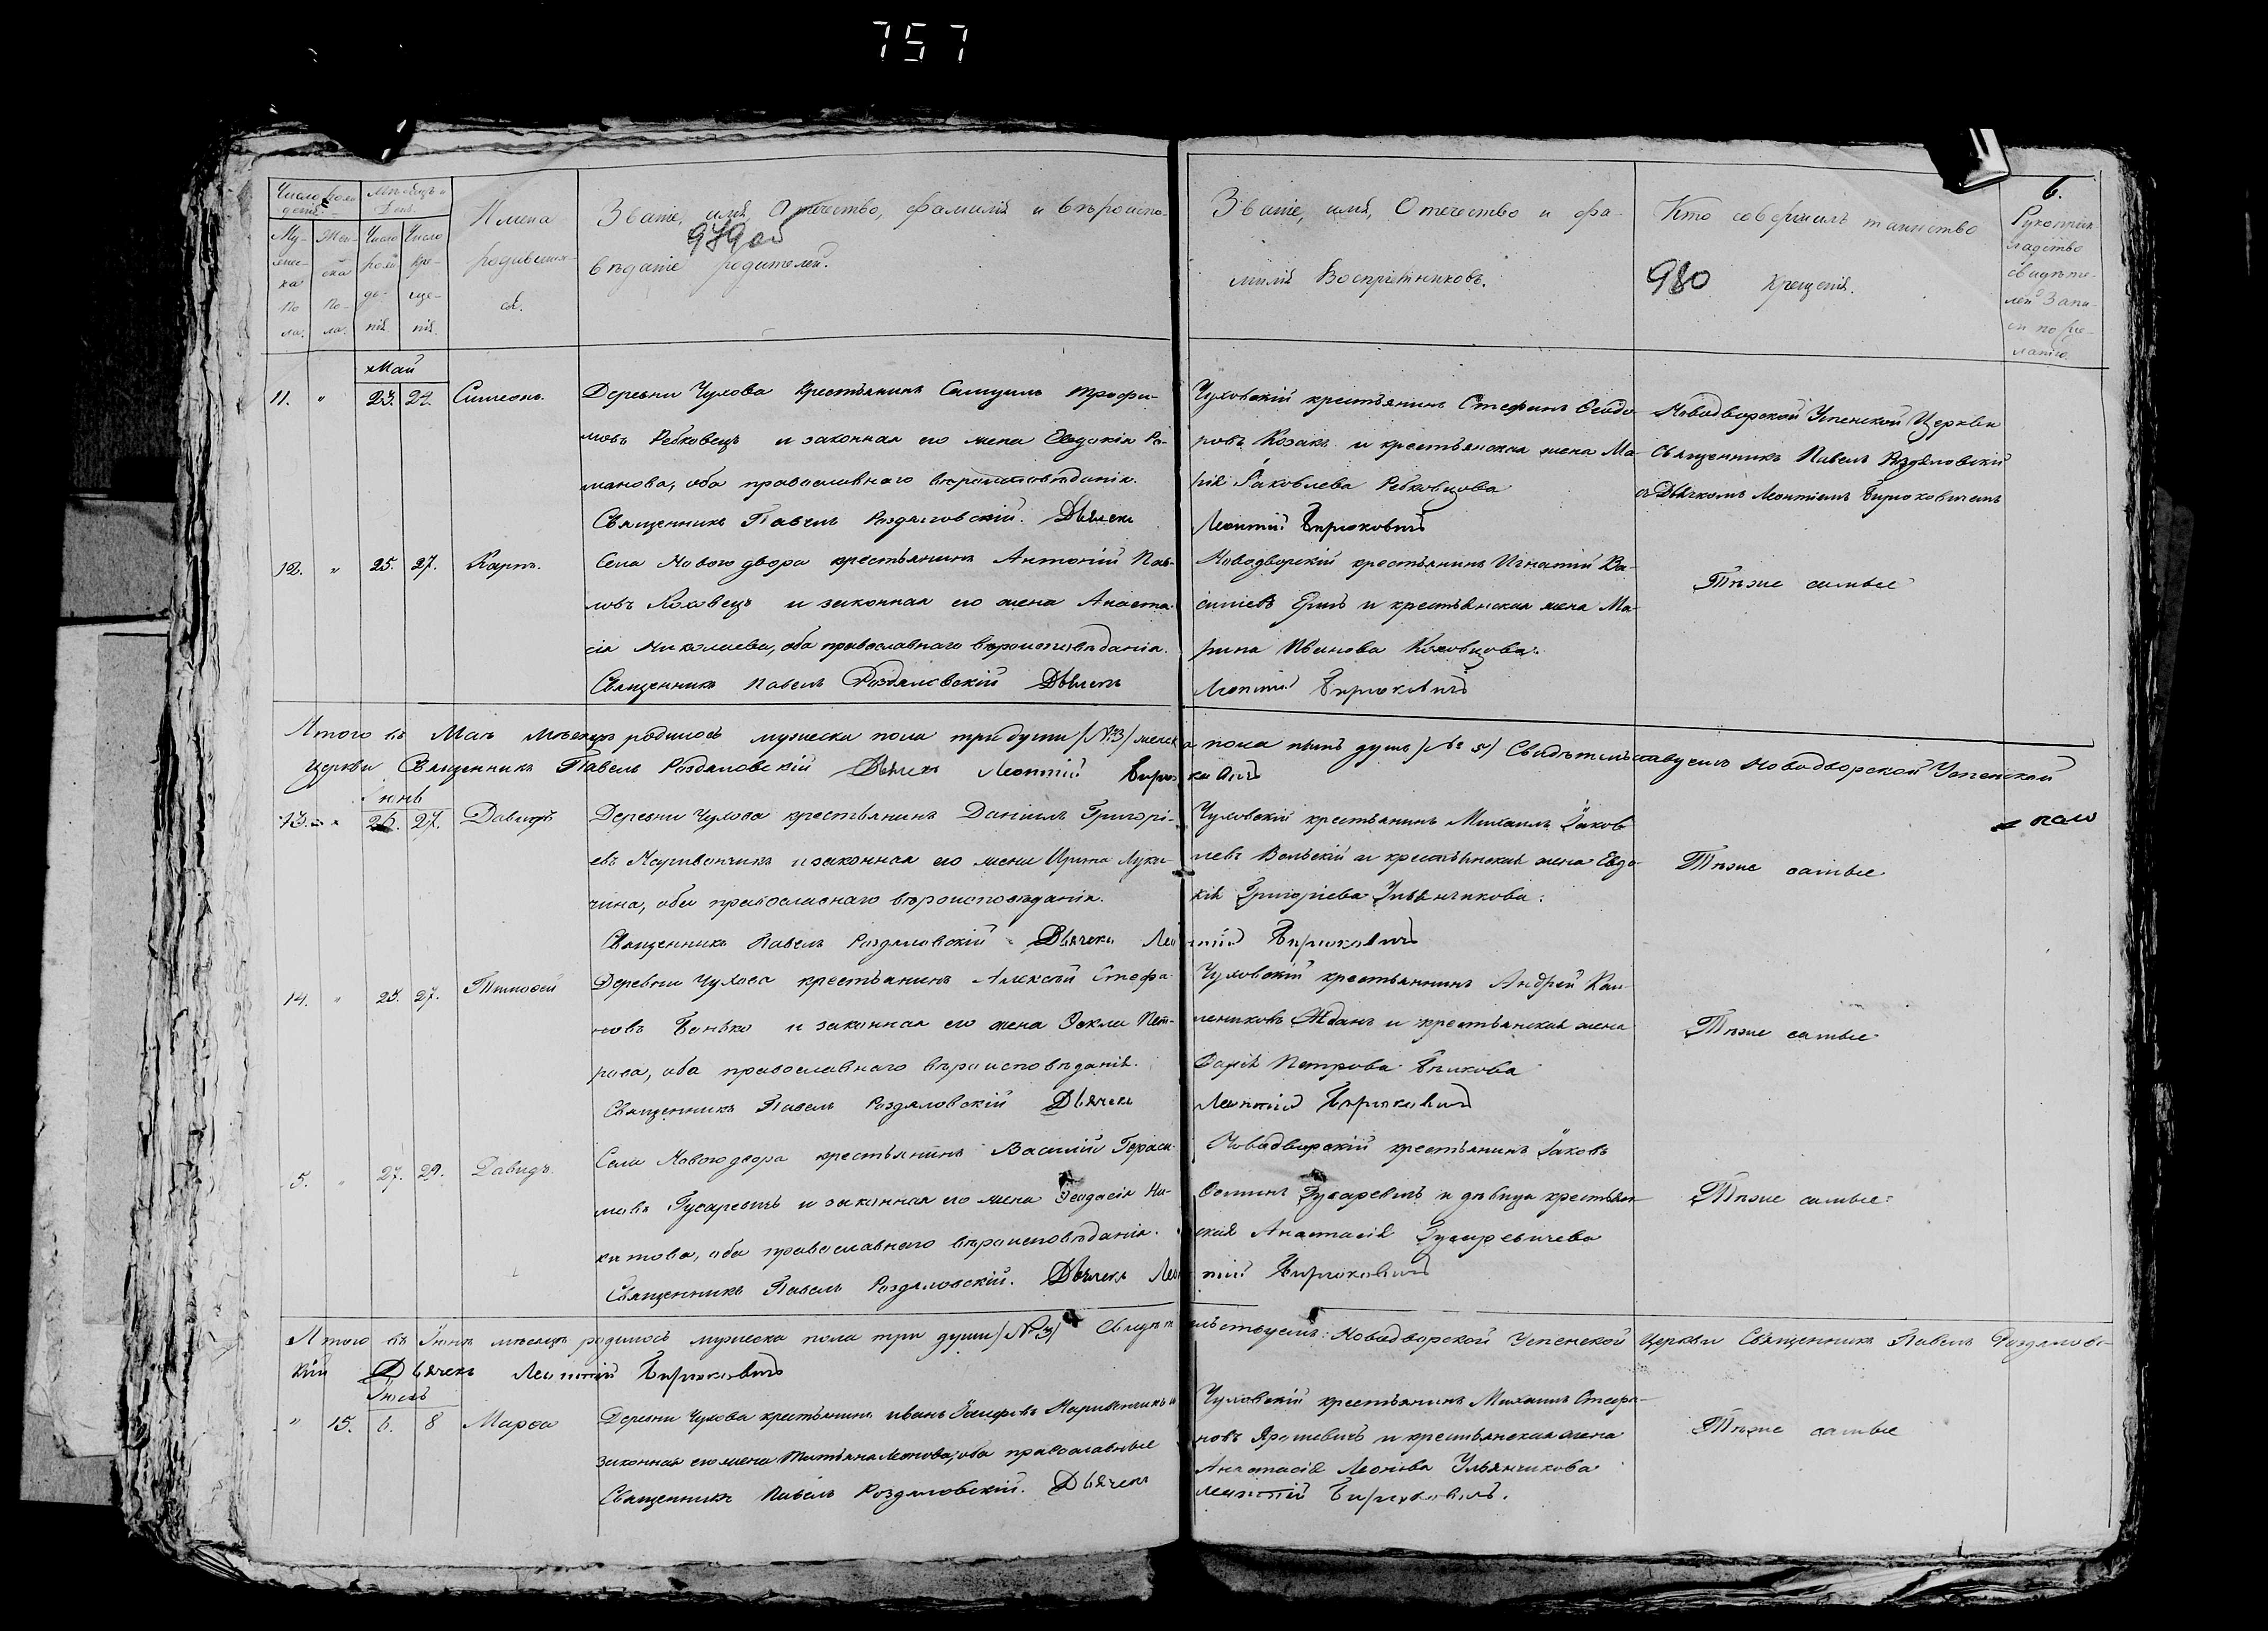 757
6.
Число рожденій.
Мужеска пола.
Женска пола.
Мѣсяцъ и День.
Число рожденія.
Число крещенія.
Имена родившихся.
Званіе, имя, Отчество, фамилія и вѣроиспо-
979 об
вѣданіе родителей.
Званіе, имя, Отчество и фа-
милія Воспріемниковъ.
Кто совершилъ таинство
980 Крещенія.
Рукоприкладство свидѣтелей Записи по желанію
Май
11. " 23. 24. Симеонъ.
Деревни Чухова Крестьянинъ Самуилъ Трофи-
мовъ Ребковецъ и законная его жена Евдокія Ро-
манова, оба православнаго вѣроисповѣданія.
Священникъ Павелъ Роздяловскій. Дьячекъ
Чуховскій крестьянинъ Стефанъ Ѳеодо-
ровъ Козакъ и крестьянская жена Ма-
рія Іаковлева Ребковцова
Леонтій Бирюковичъ
Новодворской Успенской Церкви
Священникъ Павелъ Роздяловскій
съ Дьячкомъ Леонтіемъ Бирюковичемъ
12. " 25. 27. Карпъ.
Села Новогодвора крестьянинъ Антоній Пав-
ловъ Коховецъ и законная его жена Анаста-
сія Николаева, оба православнаго вѣроисповѣданія.
Священникъ Павелъ Роздяловскій Дьячекъ
Новодворскій крестьянинъ Игнатій Ва-
силіевъ и крестьянская жена Ма-
рина Иванова Коховцова.
Леонтій Бирюковичъ
Тѣже самые
Итого въ Маѣ мѣсяцѣ родилось мужеска пола три души /№ 3/ женска пола пять душъ /№ 5/ Свидѣтельствуемъ Новодворской Успенской
Церкви Священникъ Павелъ Роздяловскій Дьячекъ Леонтій Бирюковичъ
Іюнь
13. " 26. 27. Давидъ
Деревни Чухова крестьянинъ Даніилъ Григорі-
евъ Маринчикъ и законная его жена Ирина Луки-
чина, оба православнаго вѣроисповѣданія.
Священникъ Павелъ Роздяловскій Дьячекъ Леонтій Бирюковичъ
Чуховскій крестьянинъ Михаилъ Іаков-
левъ Вольскій и крестьянская жена Евдо-
кія Григоріева Ульянчикова.
Тѣже самые
14. " 25. 27. Тимоѳей
Деревни Чухова крестьянинъ Алексѣй Стефа-
новъ Бонько и законная его жена Ѳекла Пет-
рова, оба православнаго вѣроисповѣданія.
Священникъ Павелъ Роздяловскій Дьячекъ
Чуховскій крестьянинъ Андрей
Жданъ и крестьянская жена
Дарія Петрова
Леонтій Бирюковичъ
Тѣже самые
5. " 27. 29. Давидъ.
Села Новогодвора крестьянинъ Василій Гераси-
мовъ Гусаревичъ и законная его жена Ѳеодосія Ни-
китова, оба православнаго вѣроисповѣданія.
Священникъ Павелъ Роздяловскій. Дьячекъ Леонтій Бирюковичъ
Новодворскій крестьянинъ Іаковъ
Ѳоминъ Гусаревичъ и дѣвица крестьян-
ская Анастасія Гусаревичева
Тѣже самые
Итого въ Іюнѣ мѣсяцѣ родилось мужеска пола три души /№ 3/ Свидѣтельствуемъ: Новодворской Успенской Церкви Священникъ Павелъ Роздяловс-
кій Дьячекъ Леонтій Бирюковичъ
Іюль
" 15. 6. 8 Марѳа
Деревни Чухова крестьянинъ Иванъ Іосифовъ и
законная его жена Татьяна Леонова, оба православные
Священникъ Павелъ Роздяловскій. Дьячекъ
Чуховскій крестьянинъ Михаилъ Стефа-
новъ Ярошевичъ и крестьянская жена
Анастасія Леонова Ульянчикова
Леонтій Бирюковичъ.
Тѣже самые